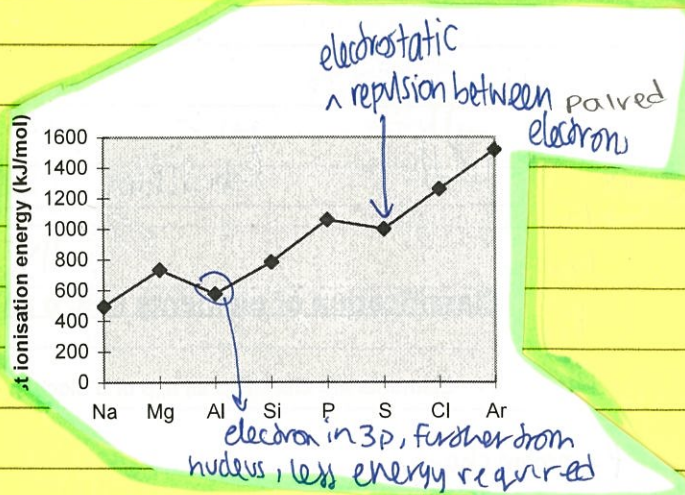 electrostatic
^ repulsion between paired
electrons
st ionisation energy (kJ/mol)
1600
1400
1200
1000
800
600
400
200
0
Na Mg Al Si P S Cl Ar
electron in 3p, further from
nucleus, less energy required